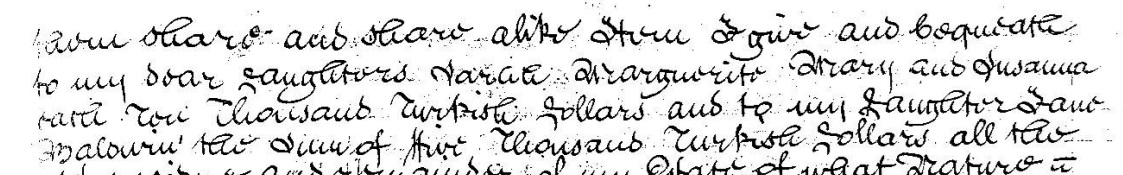 them share and share alike Item I give and bequeath
to my dear Daughters Sarah Marguerite Mary and Susanna
each Ten Thousand Turkish Dollars and to my Daughter Jane
Baldwin the Sum of five Thousand Turkish Dollars all the
and remainder of my Estate of what Nature